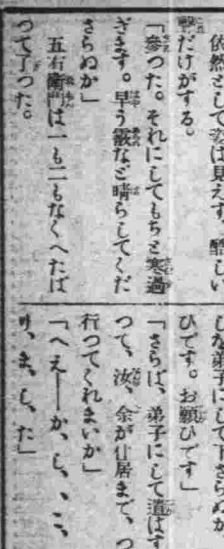 依然として姿は見えず、酷しい
聲だけがする。
「參つた。それにしてもちと寒過
ぎます。早う霰など晴らしてくだ
さらぬか」
五右衞門は一も二もなくへたば
つて了つた。
しな弟子にして下さらぬか
ひです。お願ひです」
「さらば、弟子にして遣はす
つて、汝、余が住居まで、つ
行つてくれまいか」
「へえ――か、し、、こ、
り、ま、し、た」